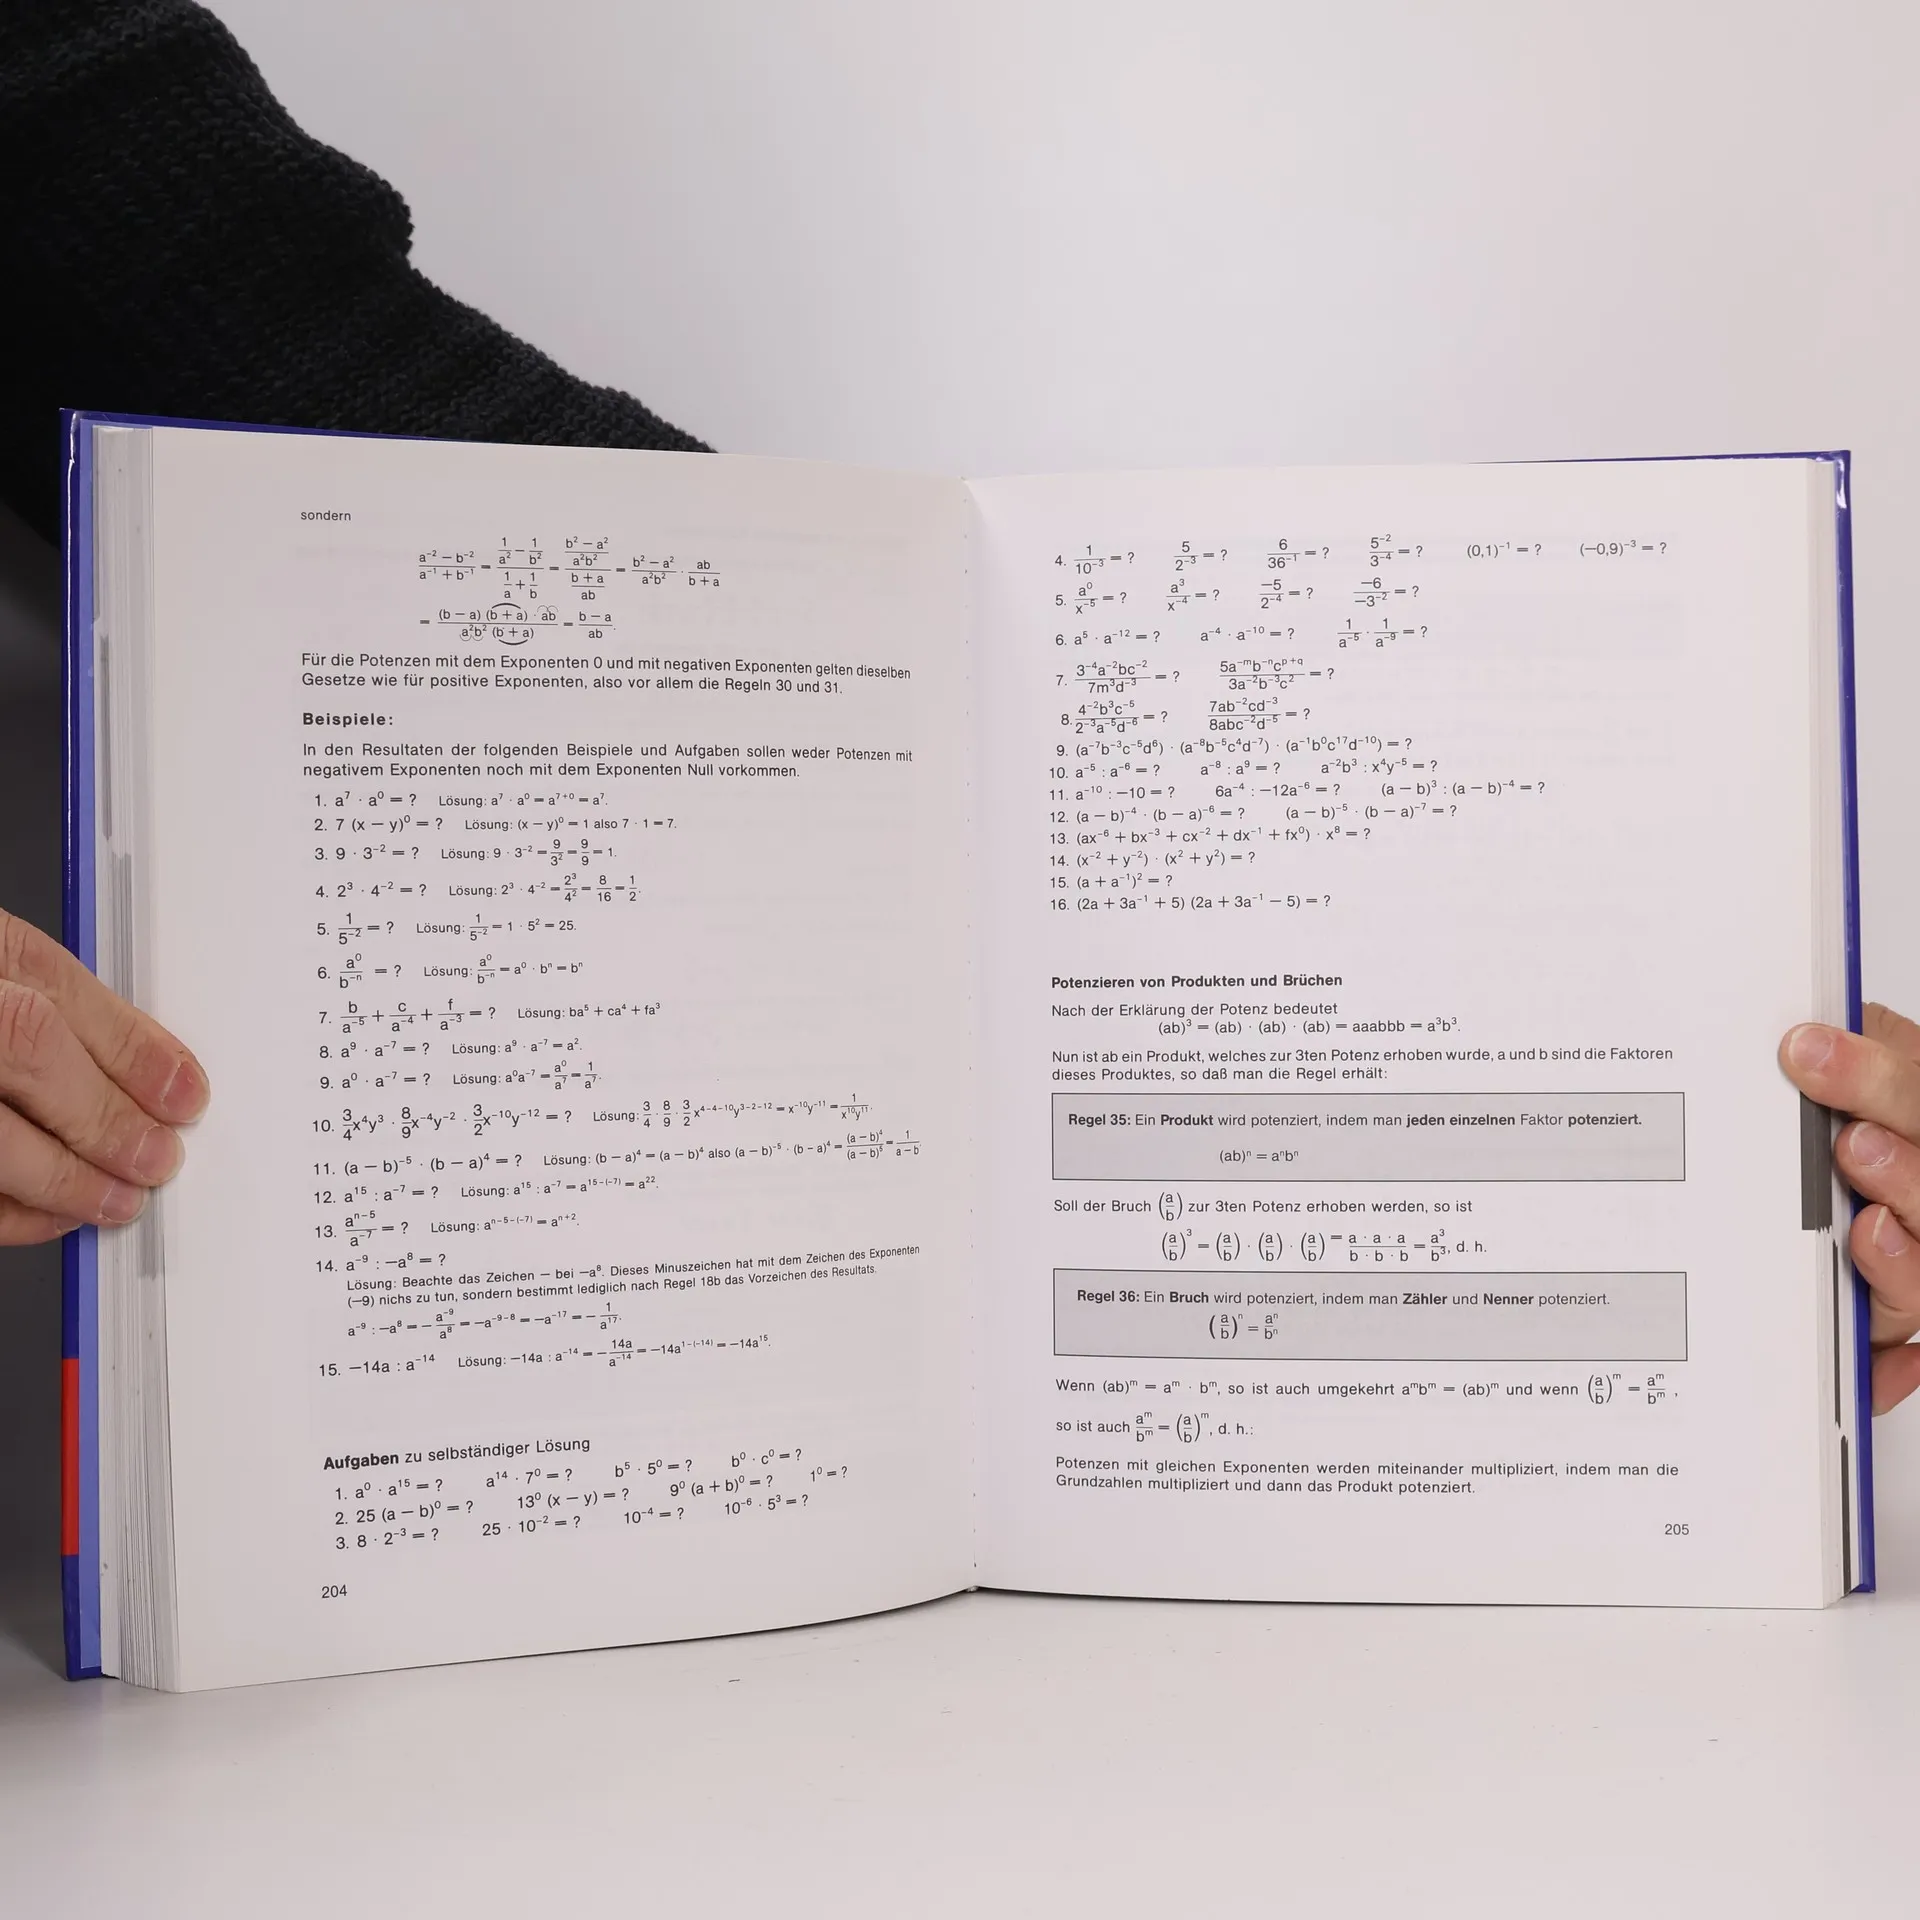 sondern
(a⁻² − b⁻²)/(a⁻¹ + b⁻¹) = (1/a² − 1/b²)/(1/a + 1/b) = ((b² − a²)/(a²b²))/((b + a)/(ab)) = (b² − a²)/(a²b²) · ab/(b + a)
= ((b − a) (b + a) · ab)/(a²b² (b + a)) = (b − a)/(ab).
Für die Potenzen mit dem Exponenten 0 und mit negativen Exponenten gelten dieselben
Gesetze wie für positive Exponenten, also vor allem die Regeln 30 und 31.
Beispiele:
In den Resultaten der folgenden Beispiele und Aufgaben sollen weder Potenzen mit
negativem Exponenten noch mit dem Exponenten Null vorkommen.
1. a⁷ · a⁰ = ? Lösung: a⁷ · a⁰ = a⁷⁺⁰ = a⁷.
2. 7 (x − y)⁰ = ? Lösung: (x − y)⁰ = 1 also 7 · 1 = 7.
3. 9 · 3⁻² = ? Lösung: 9 · 3⁻² = 9/3² = 9/9 = 1.
4. 2³ · 4⁻² = ? Lösung: 2³ · 4⁻² = 2³/4² = 8/16 = 1/2.
5. 1/5⁻² = ? Lösung: 1/5⁻² = 1 · 5² = 25.
6. a⁰/b⁻ⁿ = ? Lösung: a⁰/b⁻ⁿ = a⁰ · bⁿ = bⁿ
7. b/a⁻⁵ + c/a⁻⁴ + f/a⁻³ = ? Lösung: ba⁵ + ca⁴ + fa³
8. a⁹ · a⁻⁷ = ? Lösung: a⁹ · a⁻⁷ = a².
9. a⁰ · a⁻⁷ = ? Lösung: a⁰a⁻⁷ = a⁰/a⁷ = 1/a⁷.
10. 3/4x⁴y³ · 8/9x⁻⁴y⁻² · 3/2x⁻¹⁰y⁻¹² = ? Lösung: 3/4 · 8/9 · 3/2 x⁴⁻⁴⁻¹⁰y³⁻²⁻¹² = x⁻¹⁰y⁻¹¹ = 1/(x¹⁰y¹¹).
11. (a − b)⁻⁵ · (b − a)⁴ = ? Lösung: (b − a)⁴ = (a − b)⁴ also (a − b)⁻⁵ · (b − a)⁴ = (a − b)⁴/(a − b)⁵ = 1/(a − b).
12. a¹⁵ : a⁻⁷ = ? Lösung: a¹⁵ : a⁻⁷ = a¹⁵⁻⁽⁻⁷⁾ = a²².
13. aⁿ⁻⁵/a⁻⁷ = ? Lösung: aⁿ⁻⁵⁻⁽⁻⁷⁾ = aⁿ⁺².
14. a⁻⁹ : −a⁸ = ?
Lösung: Beachte das Zeichen − bei −a⁸. Dieses Minuszeichen hat mit dem Zeichen des Exponenten
(−9) nichs zu tun, sondern bestimmt lediglich nach Regel 18b das Vorzeichen des Resultats.
a⁻⁹ : −a⁸ = − a⁻⁹/a⁸ = −a⁻⁹⁻⁸ = −a⁻¹⁷ = − 1/a¹⁷.
15. −14a : a⁻¹⁴ Lösung: −14a : a⁻¹⁴ = − 14a/a⁻¹⁴ = −14a¹⁻⁽⁻¹⁴⁾ = −14a¹⁵.
Aufgaben zu selbständiger Lösung
1. a⁰ · a¹⁵ = ? a¹⁴ · 7⁰ = ? b⁵ · 5⁰ = ? b⁰ · c⁰ = ?
2. 25 (a − b)⁰ = ? 13⁰ (x − y) = ? 9⁰ (a + b)⁰ = ? 1⁰ = ?
3. 8 · 2⁻³ = ? 25 · 10⁻² = ? 10⁻⁴ = ? 10⁻⁶ · 5³ = ?
204
4. 1/10⁻³ = ? 5/2⁻³ = ? 6/36⁻¹ = ? 5⁻²/3⁻⁴ = ? (0,1)⁻¹ = ? (−0,9)⁻³ = ?
5. a⁰/x⁻⁵ = ? a³/x⁻⁴ = ? −5/2⁻⁴ = ? −6/−3⁻² = ?
6. a⁵ · a⁻¹² = ? a⁻⁴ · a⁻¹⁰ = ? 1/a⁻⁵ · 1/a⁻⁹ = ?
7. (3⁻⁴a⁻²bc⁻²)/(7m³d⁻³) = ? (5a⁻ᵐb⁻ⁿcᵖ⁺q)/(3a⁻²b⁻³c²) = ?
8. (4⁻²b³c⁻⁵)/(2⁻³a⁻⁵d⁻⁶) = ? (7ab⁻²cd⁻³)/(8abc⁻²d⁻⁵) = ?
9. (a⁻⁷b⁻³c⁻⁵d⁶) · (a⁻⁸b⁻⁵c⁴d⁻⁷) · (a⁻¹b⁰c¹⁷d⁻¹⁰) = ?
10. a⁻⁵ : a⁻⁶ = ? a⁻⁸ : a⁹ = ? a⁻²b³ : x⁴y⁻⁵ = ?
11. a⁻¹⁰ : −10 = ? 6a⁻⁴ : −12a⁻⁶ = ? (a − b)³ : (a − b)⁻⁴ = ?
12. (a − b)⁻⁴ · (b − a)⁻⁶ = ? (a − b)⁻⁵ · (b − a)⁻⁷ = ?
13. (ax⁻⁶ + bx⁻³ + cx⁻² + dx⁻¹ + fx⁰) · x⁸ = ?
14. (x⁻² + y⁻²) · (x² + y²) = ?
15. (a + a⁻¹)² = ?
16. (2a + 3a⁻¹ + 5) (2a + 3a⁻¹ − 5) = ?
Potenzieren von Produkten und Brüchen
Nach der Erklärung der Potenz bedeutet
(ab)³ = (ab) · (ab) · (ab) = aaabbb = a³b³.
Nun ist ab ein Produkt, welches zur 3ten Potenz erhoben wurde, a und b sind die Faktoren
dieses Produktes, so daß man die Regel erhält:
Regel 35: Ein Produkt wird potenziert, indem man jeden einzelnen Faktor potenziert.
(ab)ⁿ = aⁿbⁿ
Soll der Bruch (a/b) zur 3ten Potenz erhoben werden, so ist
(a/b)³ = (a/b) · (a/b) · (a/b) = (a · a · a)/(b · b · b) = a³/b³, d. h.
Regel 36: Ein Bruch wird potenziert, indem man Zähler und Nenner potenziert.
(a/b)ⁿ = aⁿ/bⁿ
Wenn (ab)ᵐ = aᵐ · bᵐ, so ist auch umgekehrt aᵐbᵐ = (ab)ᵐ und wenn (a/b)ᵐ = aᵐ/bᵐ ,
so ist auch aᵐ/bᵐ = (a/b)ᵐ, d. h.:
Potenzen mit gleichen Exponenten werden miteinander multipliziert, indem man die
Grundzahlen multipliziert und dann das Produkt potenziert.
205